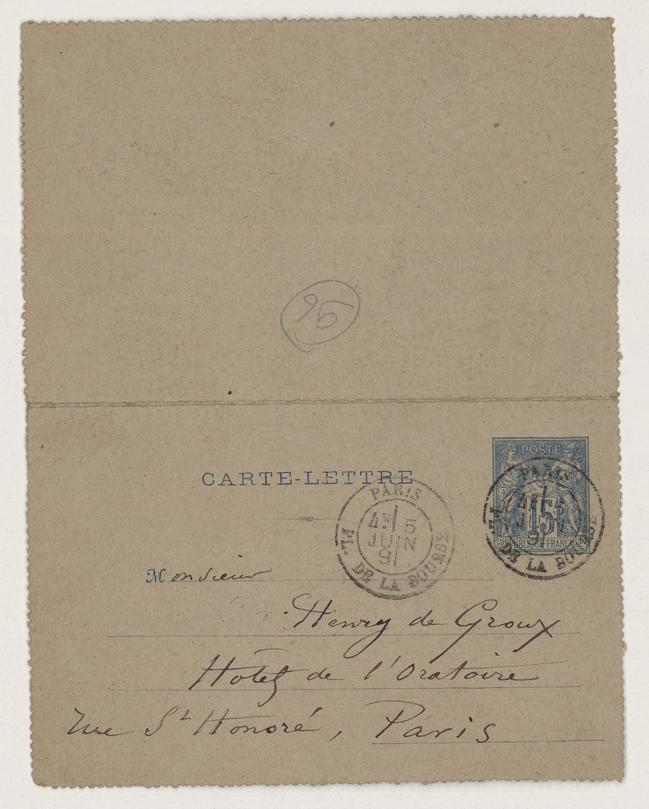 96
CARTE-LETTRE
POSTE
15
RÉPUBLIQUE FRANÇAISE
PARIS
5
JUIN
91
PL. DE LA BOURSE
PARIS
5
JUIN
91
PL. DE LA BOURSE
Monsieur
Henry de Groux
Hotel de l'Oratoire
rue St Honoré, Paris